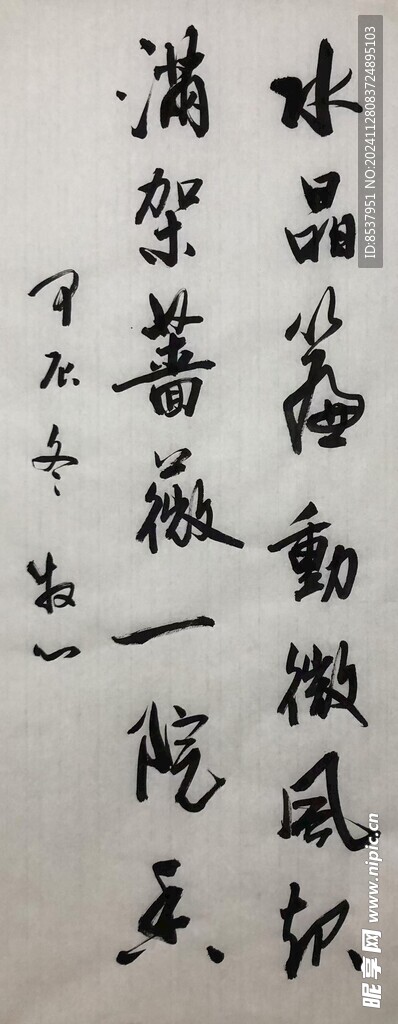 水晶簾動微風起
滿架薔薇一院香
甲辰冬 牧心
ID:8537951 NO:20241128083724895103
昵享网 www.nipic.cn